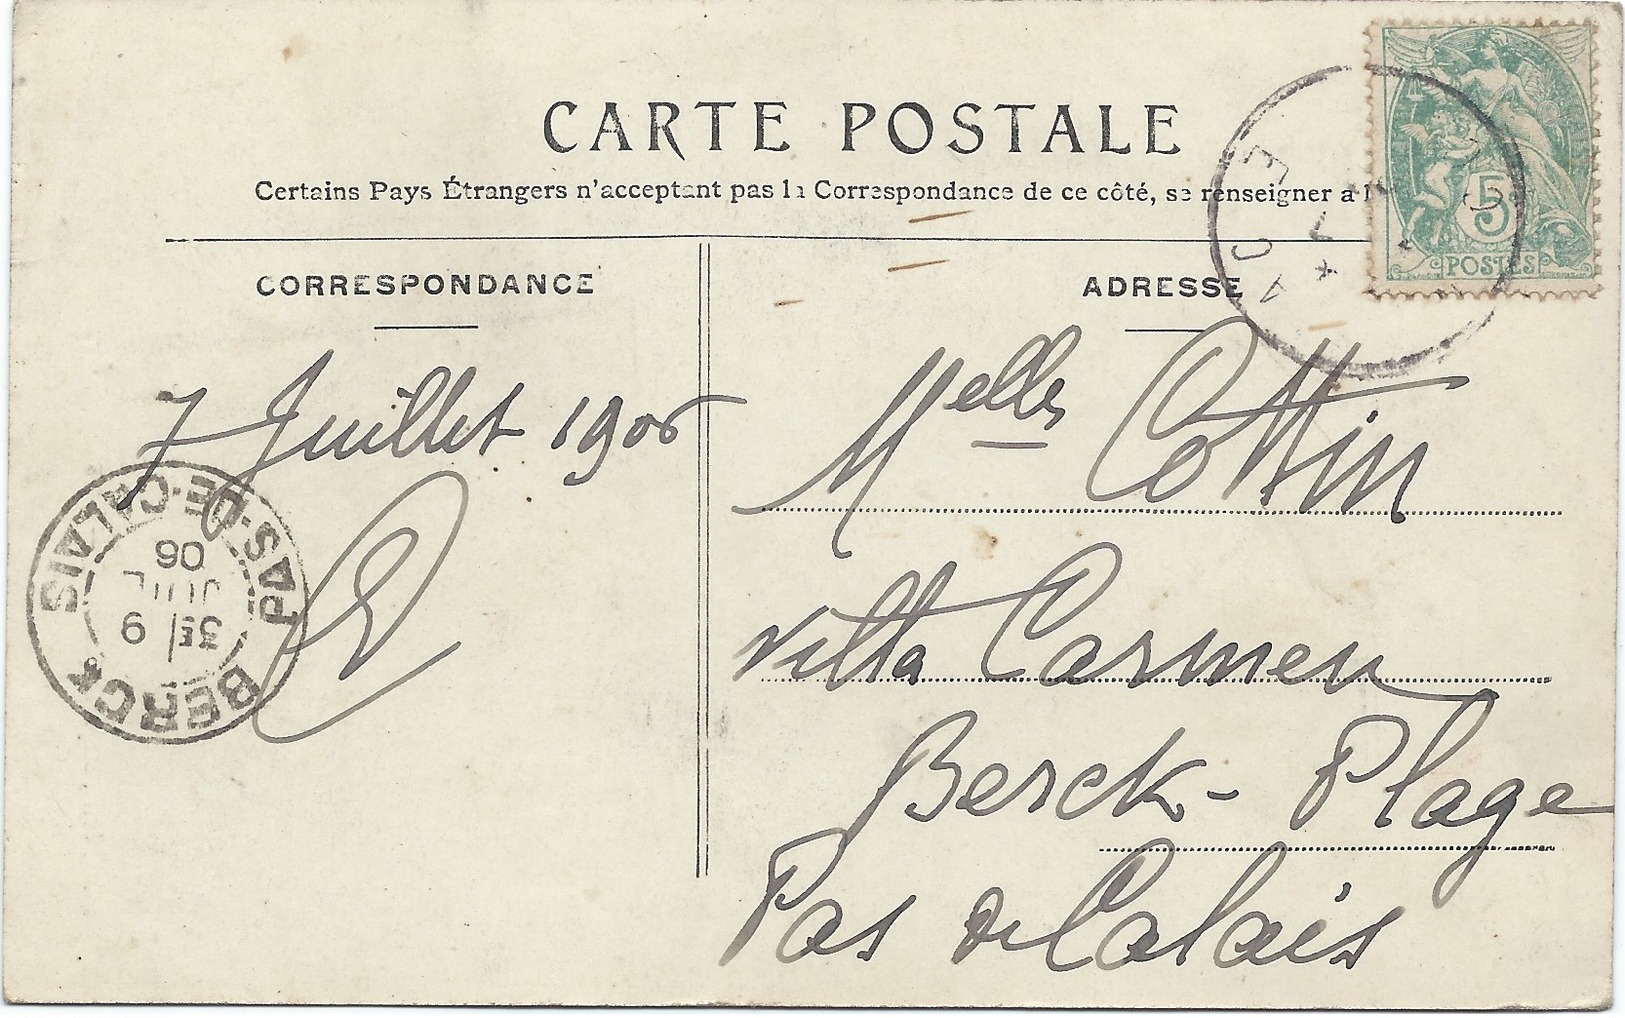 CARTE POSTALE
Certains Pays Étrangers n'acceptant pas la Correspondance de ce côté, se renseigner a l
CORRESPONDANCE
ADRESSE
5
POSTES
7 Juillet 1906
Melles Cottin
Villa Carmen
Berck-Plage
Pas de Calais
BERCK
PAS-DE-CALAIS
35 9
JUIL
06